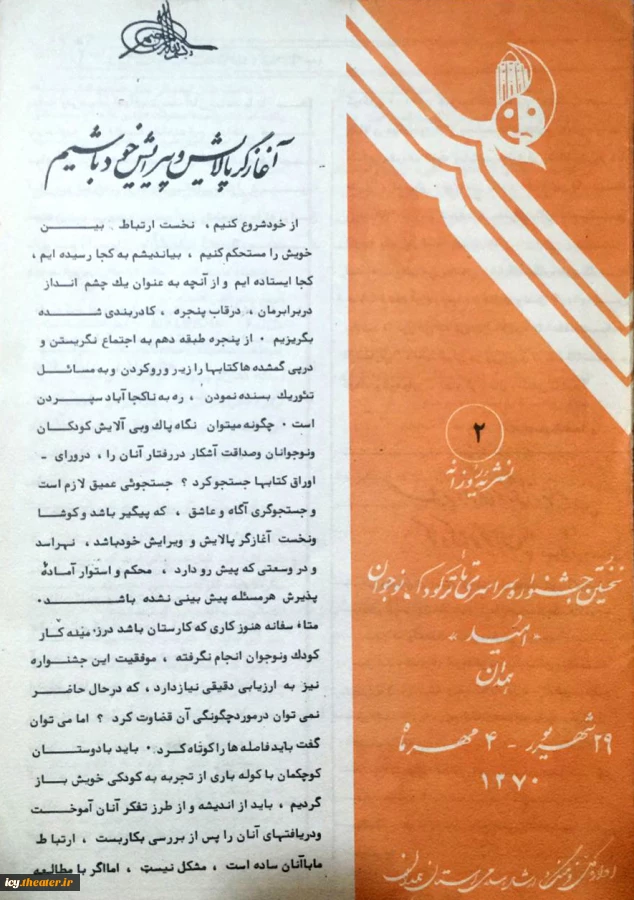 آغازگر پالایش و پیرایش خود باشیم
از خودشروع کنیم ، نخست ارتباط بیـــن
خویش را مستحکم کنیم ، بیاندیشم به کجا رسیده ایم ،
کجا ایستاده ایم و از آنچه به عنوان یك چشم انداز
دربرابرمان ، درقاب پنجره ، کادربندی شـــده
بگریزیم ۰ از پنجره طبقه دهم به اجتماع نگریستن و
درپی گمشده ها کتابها را زیر و روکردن و به مسائــل
تئوریك بسنده نمودن ، ره به ناکجا آباد سپــردن
است ۰ چگونه میتوان نگاه پاك وبی آلایش کودکــان
ونوجوانان وصداقت آشکار دررفتار آنان را ، درورای -
اوراق کتابها جستجو کرد ؟ جستجوئی عمیق لازم است
و جستجوگری آگاه و عاشق ، که پیگیر باشد و کوشا
ونخست آغازگر پالایش و ویرایش خودباشد ، نهراسد
و در وسعتی که پیش رو دارد ، محکم و استوار آمادهٔ
پذیرش هرمسئله پیش بینی نشده باشـــد ۰
متاء سفانه هنوز کاری که کارستان باشد درزمینه کـار
کودك ونوجوان انجام نگرفته ، موفقیت این جشنـواره
نیز به ارزیابی دقیقی نیازدارد ، که درحال حاضــر
نمی توان درموردچگونگی آن قضاوت کرد ؟ اما می توان
گفت باید فاصله ها را کوتاه کـرد ۰ باید بادوستــان
کوچکمان با کوله باری از تجربه به کودکی خویش بــاز
گردیم ، باید از اندیشه و از طرز تفکر آنان آموخــت
ودریافتهای آنان را پس از بررسی بکاربست ، ارتبـاط
ماباآنان ساده است ، مشکل نیست ، امااگر با مطالـعه
۲
نشریه روزانه
نخستین جشنواره سراسری تئاتر کودک و نوجوان
« امید »
همدان
۲۹ شهریور - ۴ مهرماه
۱۳۷۰
اداره کل فرهنگ و ارشاد اسلامی استان همدان
icy.theater.ir